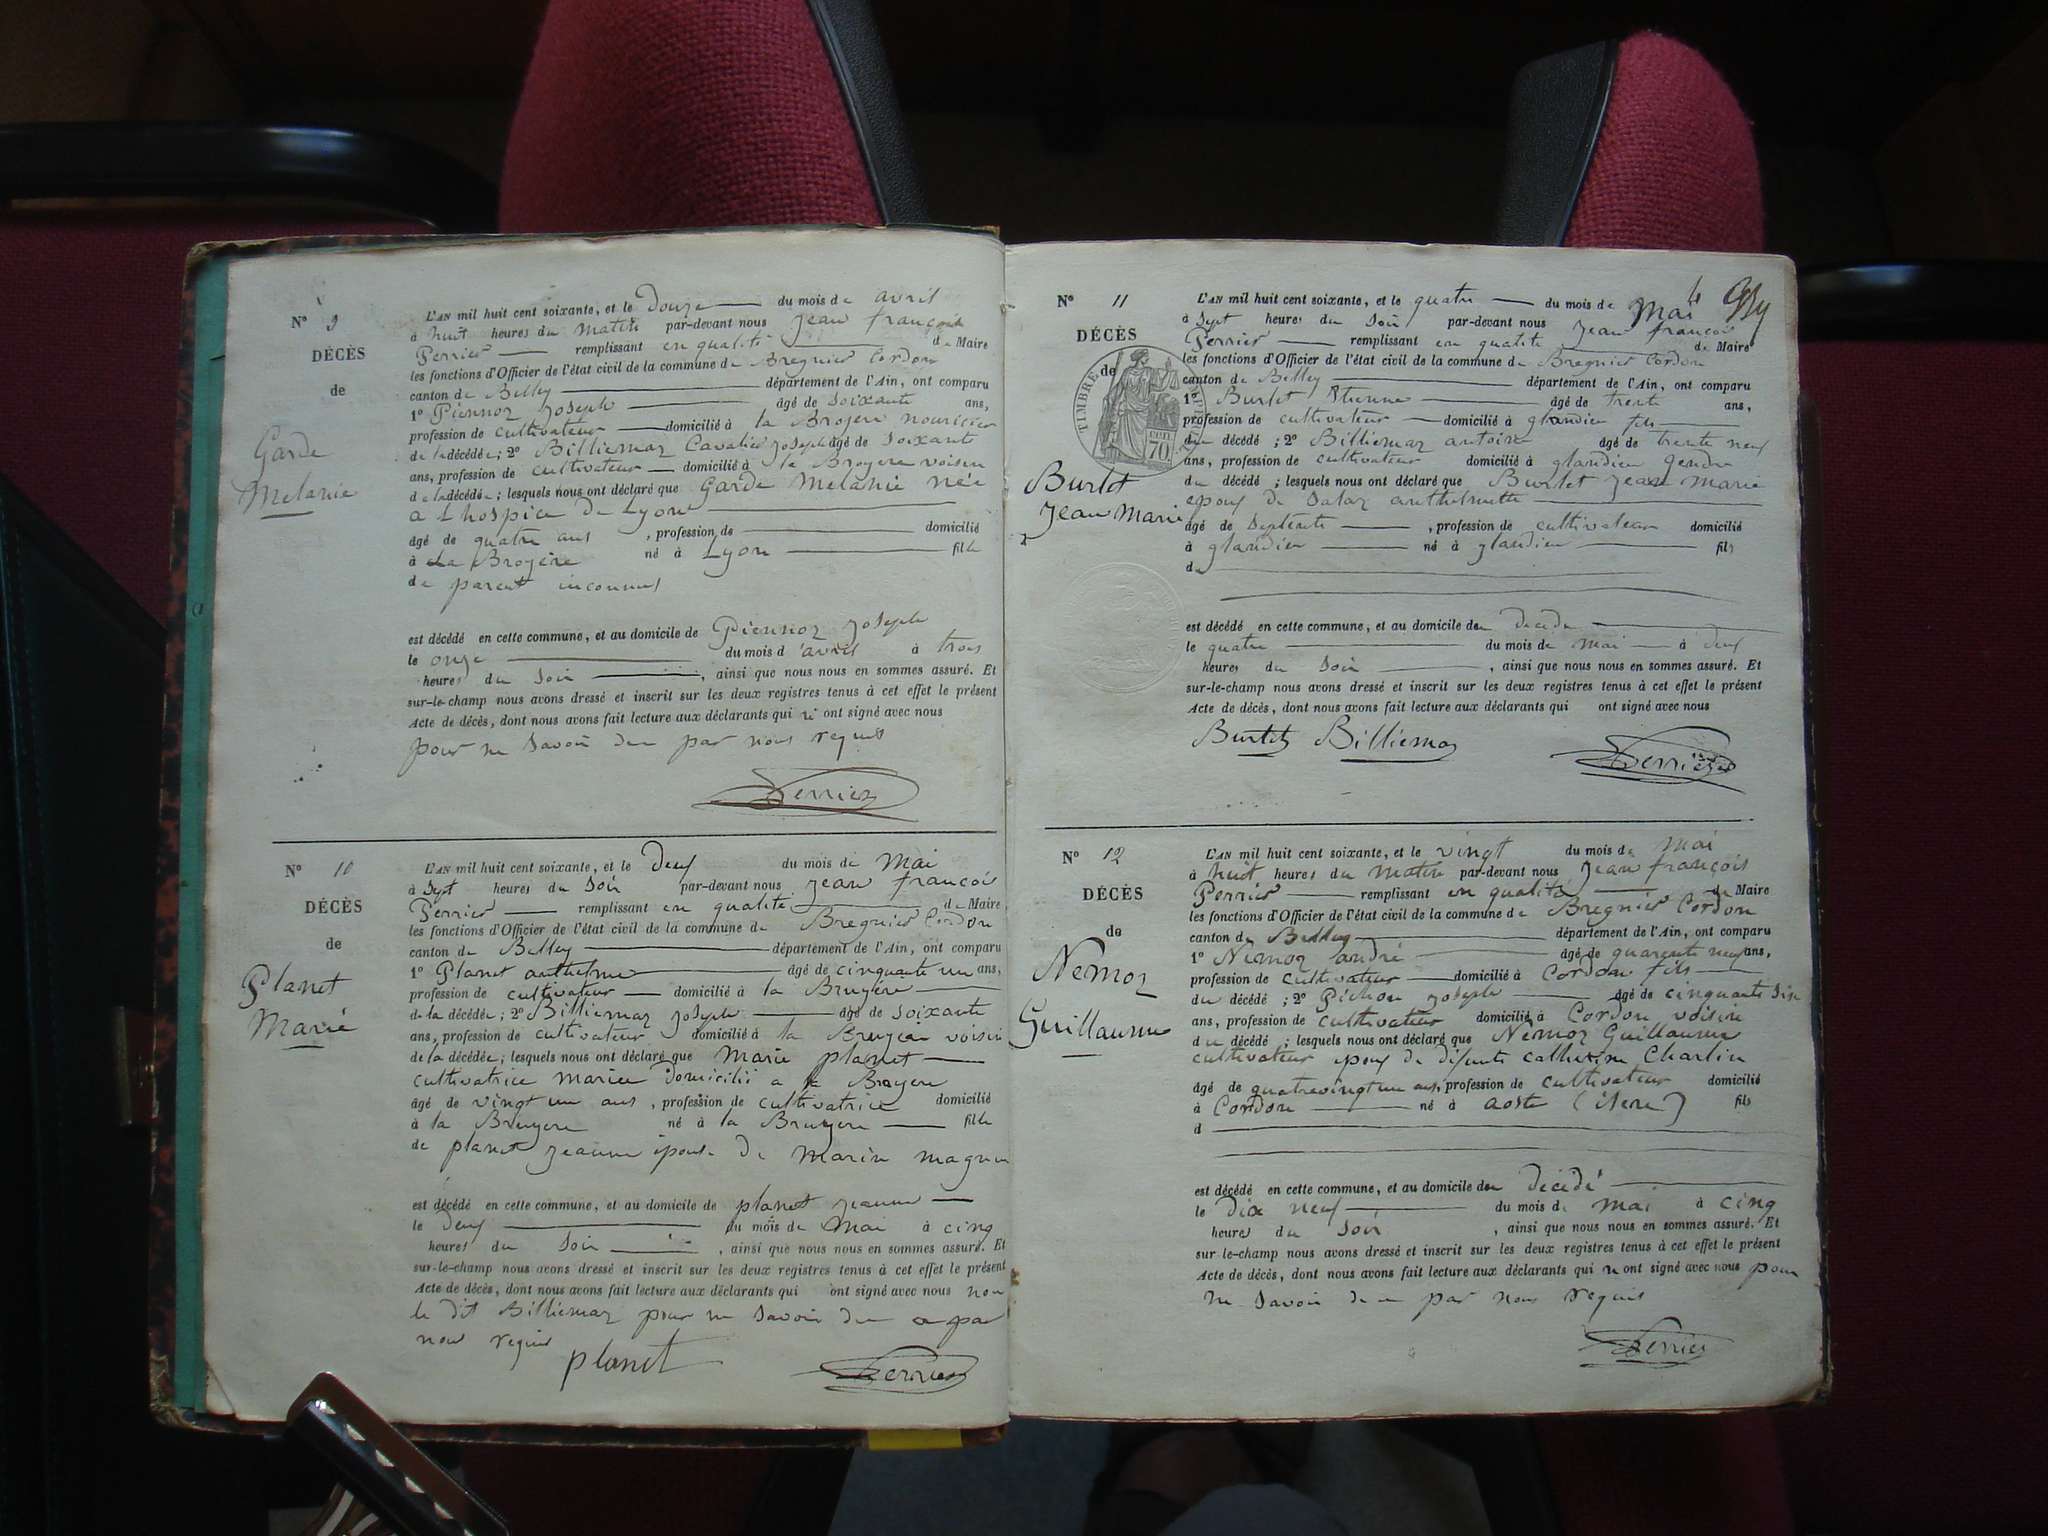 N° 9
DÉCÈS
de
Garde
Melanie
L'AN mil huit cent soixante, et le Douze du mois de avril
à huit heures du matin par-devant nous Jean françois
Perrier remplissant en qualité de Maire
les fonctions d'Officier de l'état civil de la commune de Bregnier Cordon
canton de Belley département de l'Ain, ont comparu
1° Piennoz Joseph âgé de soixante ans,
profession de cultivateur domicilié à la Broyere nouricier
de la décédée; 2° Billiemaz Cavalier Joseph âgé de soixante
ans, profession de cultivateur domicilié à la Broyere voisin
de la décédée; lesquels nous ont déclaré que Garde Melanie née
a L hospice de Lyon
âgé de quatre ans , profession de domicilié
à La Broyère né à Lyon fille
de parent inconnus
est décédé en cette commune, et au domicile de Piennoz Joseph
le onze du mois d'avril à trois
heures du soir , ainsi que nous nous en sommes assuré. Et
sur-le-champ nous avons dressé et inscrit sur les deux registres tenus à cet effet le présent
Acte de décès, dont nous avons fait lecture aux déclarants qui n ont signé avec nous
pour ne savoir de ce par nous requis
Perrier
N° 10
DÉCÈS
de
Planet
Marie
L'AN mil huit cent soixante, et le deux du mois de Mai
à Sept heures du Soir par-devant nous Jean françois
Perrier remplissant en qualité de Maire
les fonctions d'Officier de l'état civil de la commune de Bregnier Cordon
canton de Belley département de l'Ain, ont comparu
1° Planet anthelme âgé de cinquante un ans,
profession de cultivateur domicilié à la Bruyère
de la décédée; 2° Billiemaz Joseph âgé de soixante
ans, profession de cultivateur domicilié à la Bruyèr voisin
de la décédée; lesquels nous ont déclaré que Marie planet
cultivatrice mariee domicilié a la Broyere
âgé de vingt un ans , profession de cultivatrice domicilié
à la Bruyere né à la Bruyere fille
de planet Jeanne épouse de Marin magnin
est décédé en cette commune, et au domicile de planet Jeanne
le deux du mois de Mai à cinq
heures du soir , ainsi que nous nous en sommes assuré. Et
sur-le-champ nous avons dressé et inscrit sur les deux registres tenus à cet effet le présent
Acte de décès, dont nous avons fait lecture aux déclarants qui ont signé avec nous non
le dit Billiemaz pour ne savoir de ce par
nous requis
planet Perrier
N° 11
DÉCÈS
de
TIMBRE IMPÉRIAL
70
Burlet
Jean Marie
L'AN mil huit cent soixante, et le quatre du mois de Mai
à sept heures du soir par-devant nous Jean françois
Perrier remplissant en qualité de Maire
les fonctions d'Officier de l'état civil de la commune de Bregnier Cordon
canton de Belley département de l'Ain, ont comparu
1° Burlet Etienne âgé de trente ans,
profession de cultivateur domicilié à glandieu fils
du décédé ; 2° Billiemaz antoine âgé de trente neuf
ans, profession de cultivateur domicilié à glandieu gendre
du décédé ; lesquels nous ont déclaré que Burlet Jean Marie
epoux de Salaz anthelmette
âgé de septente , profession de cultivateur domicilié
à glandieu né à glandieu fils
d
est décédé en cette commune, et au domicile du décédé
le quatre du mois de mai à deux
heures du soir , ainsi que nous nous en sommes assuré. Et
sur-le-champ nous avons dressé et inscrit sur les deux registres tenus à cet effet le présent
Acte de décès, dont nous avons fait lecture aux déclarants qui ont signé avec nous
Burlet Billiemaz Perrier
N° 12
DÉCÈS
de
Nemoz
Guillaume
L'AN mil huit cent soixante, et le vingt du mois de mai
à huit heures du matin par-devant nous Jean françois
Perrier remplissant en qualité de Maire
les fonctions d'Officier de l'état civil de la commune de Bregnier Cordon
canton de Belley département de l'Ain, ont comparu
1° Nemoz andré âgé de quarente neuf ans,
profession de cultivateur domicilié à Cordon fils
du décédé ; 2° Pichon Joseph âgé de cinquante six
ans, profession de cultivateur domicilié à Cordon voisin
du décédé ; lesquels nous ont déclaré que Nemoz Guillaume
cultivateur epoux de difunte Catherine Charlin
âgé de quatrevingt un ans, profession de cultivateur domicilié
à Cordon né à aoste (isere) fils
d
est décédé en cette commune, et au domicile du décédé
le dix neuf du mois de mai à cinq
heures du soir , ainsi que nous nous en sommes assuré. Et
sur-le-champ nous avons dressé et inscrit sur les deux registres tenus à cet effet le présent
Acte de décès, dont nous avons fait lecture aux déclarants qui n ont signé avec nous pour
ne savoir de ce par nous requis
Perrier